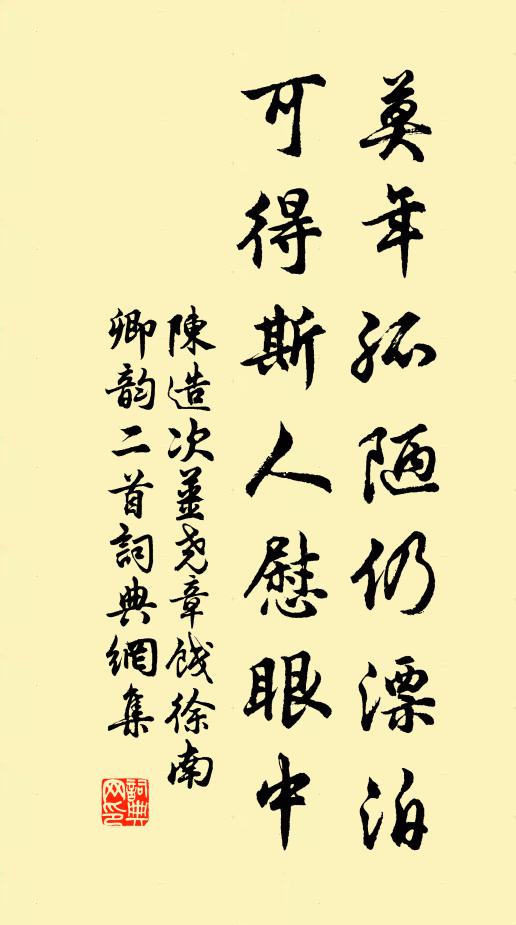 莫年孤陋仍漂泊
可得斯人慰眼中
陳造次薑尧章餞徐南
卿韵二首詞典網集
詞典网印